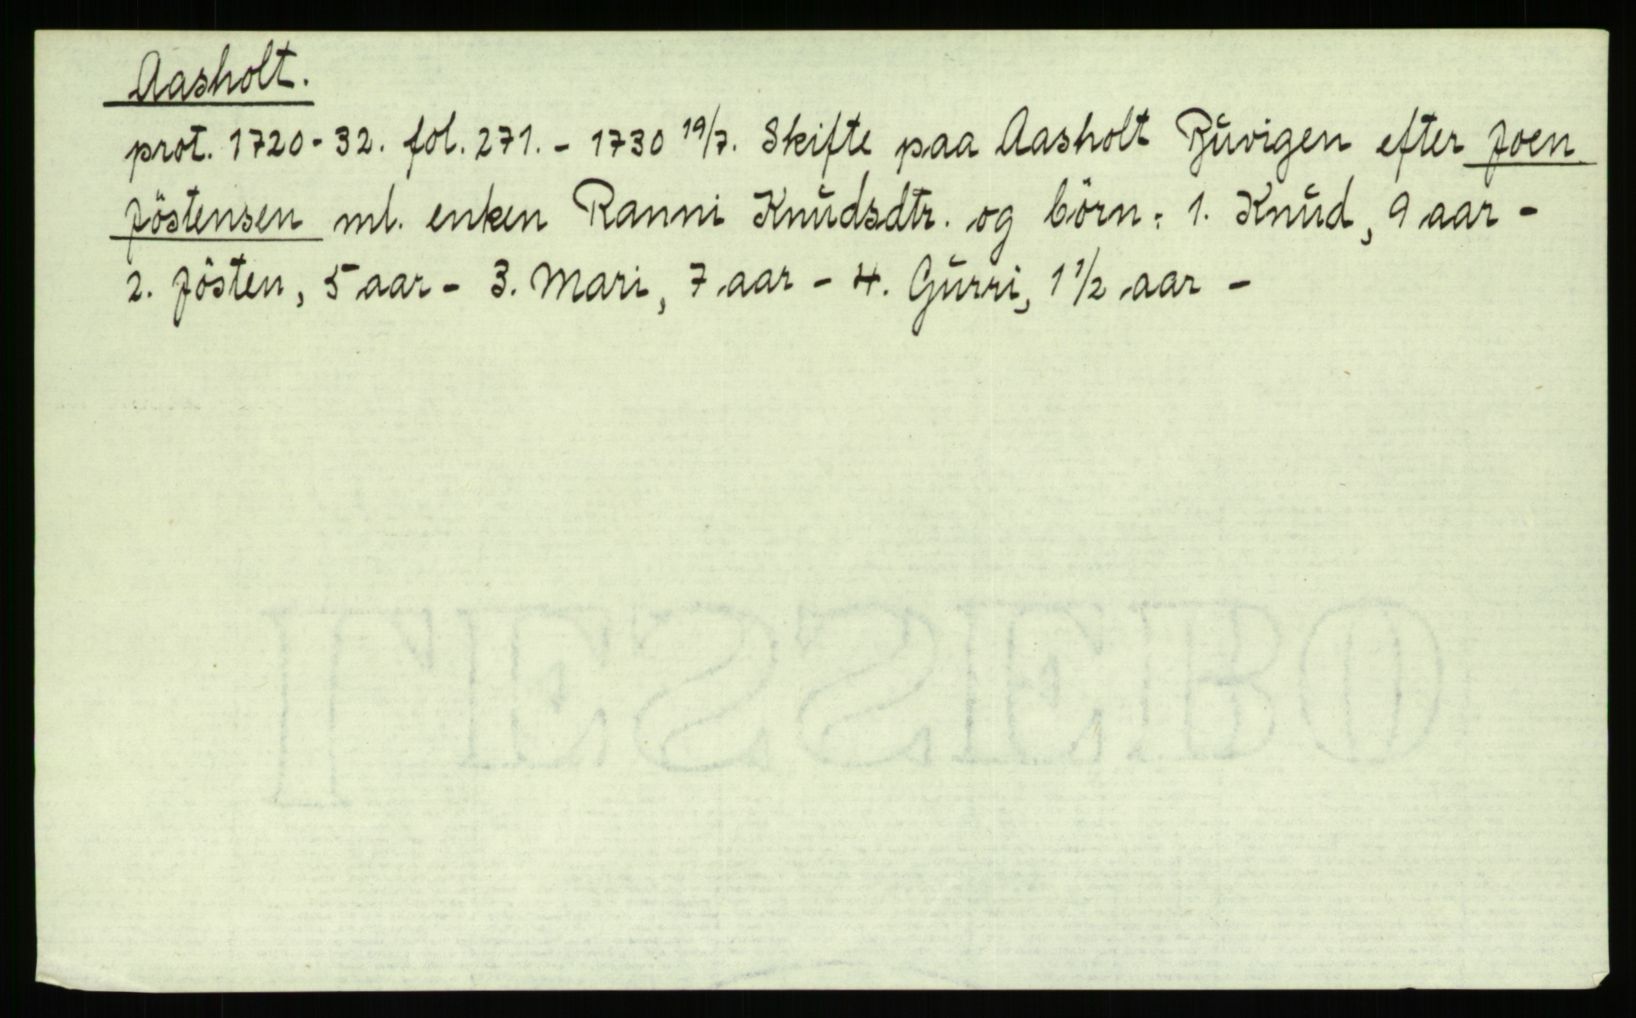 Aasholt.
prot. 1720-32. fol. 271. - 1730 19/7. Skifte paa Aasholt Buvigen efter Joen
Jöstensen ml. enken Ranni Knudsdtr. og börn: 1. Knud, 9 aar -
2. Jösten, 5 aar - 3. Mari, 7 aar - 4. Gurri, 1 1/2 aar -
LESSEBO